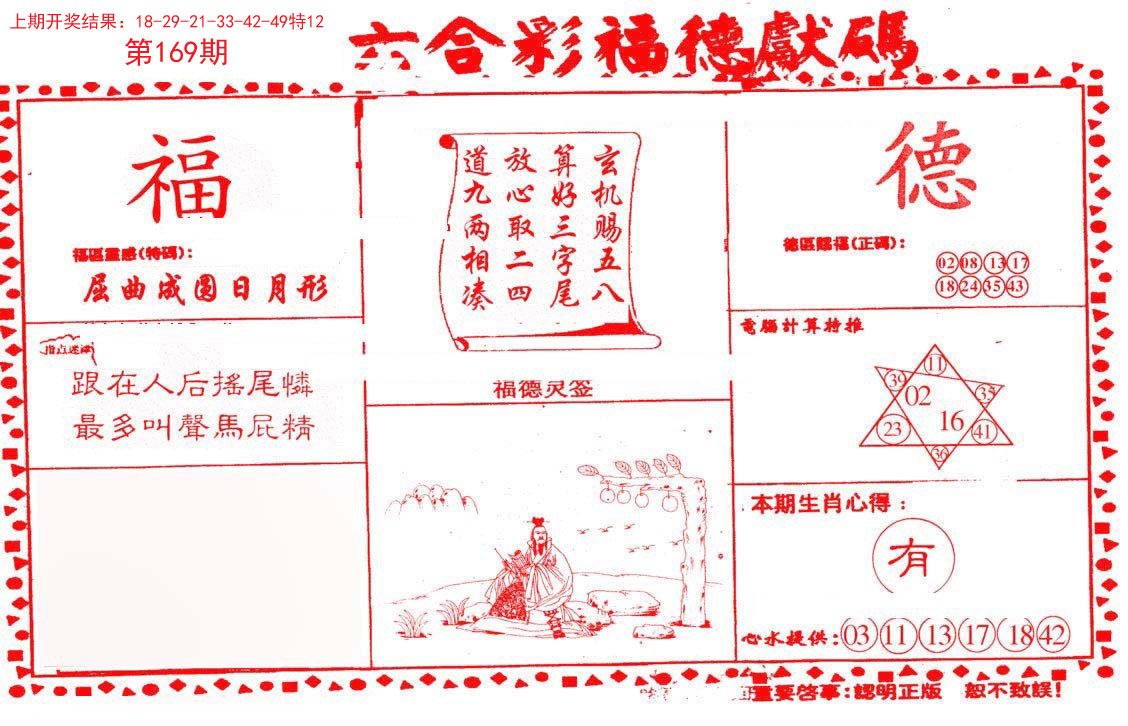 上期开奖结果：18-29-21-33-42-49特12
第169期
六合彩福德獻碼
福
福區靈感(特碼)：
屈曲成圆日月形
指点迷津
跟在人后搖尾憐
最多叫聲馬屁精
玄机赐五八
算好三字尾
放心取二四
道九两相凑
福德灵签
德
德區賜福(正碼)：
02 08 13 17
18 24 35 43
電腦計算特推
11
39
02
35
16
23
41
36
本期生肖心得：
有
心水提供：03 11 13 17 18 42
重要啓事：認明正版 恕不致誤！